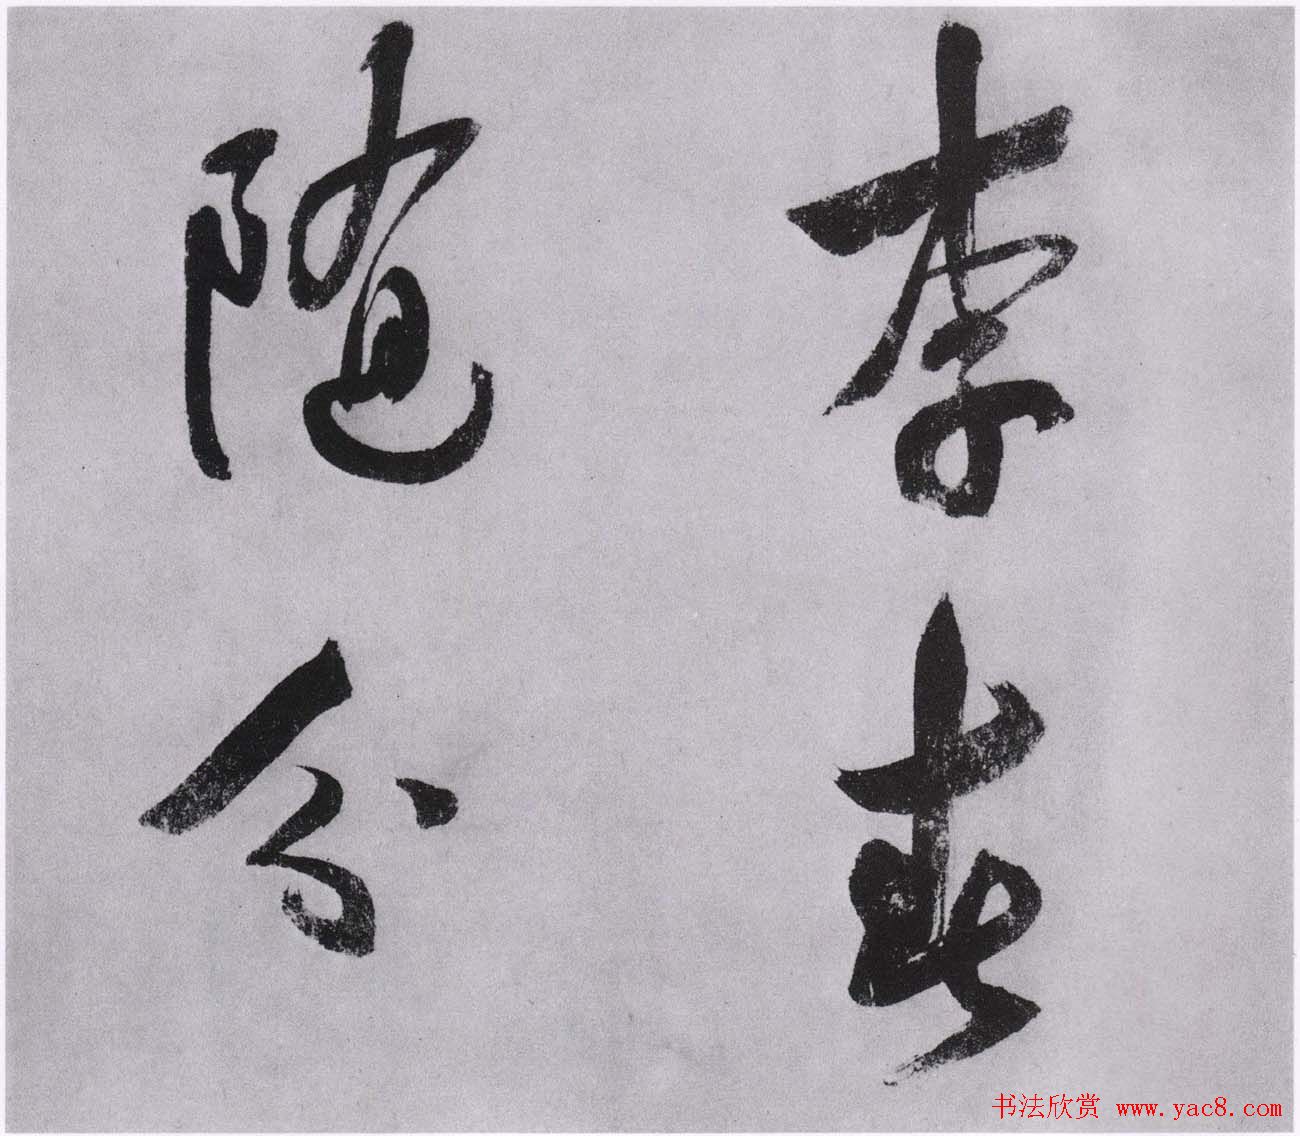 李
随分
书法欣赏 www.yac8.com